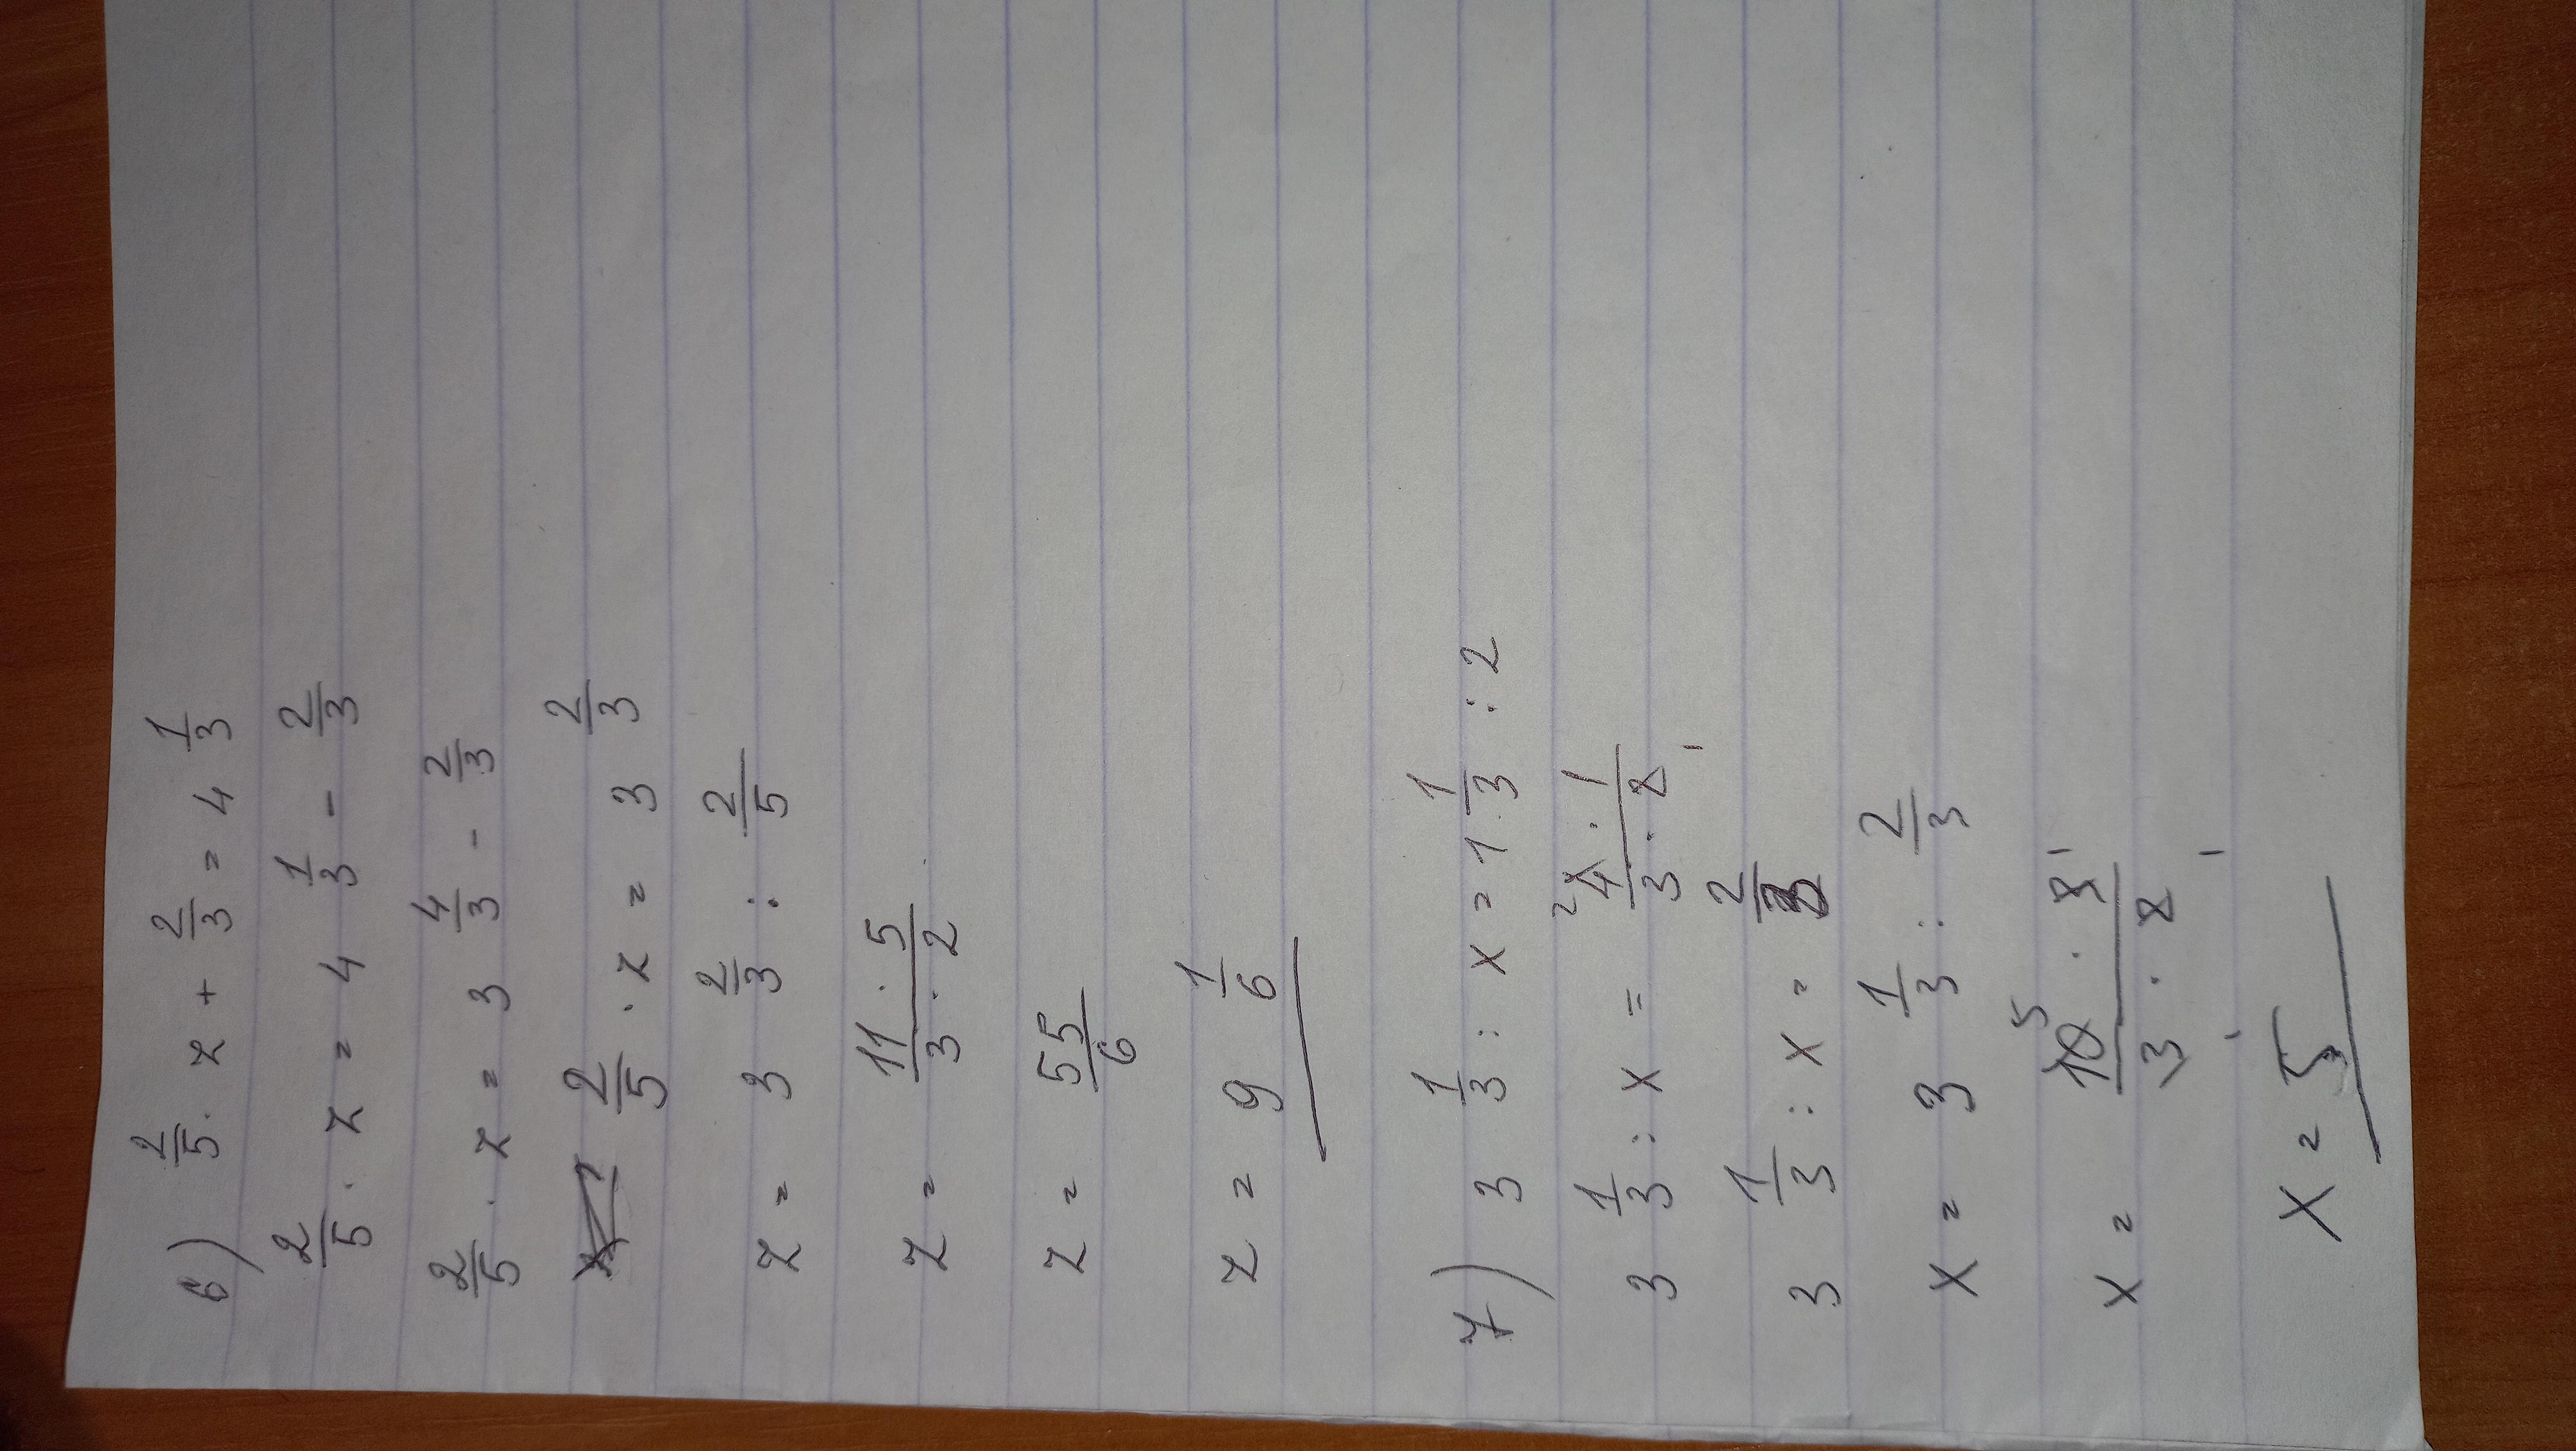 6) 2/5 · z + 2/3 = 4 1/3
2/5 · z = 4 1/3 - 2/3
2/5 · z = 3 4/3 - 2/3
2/5 · z = 3 2/3
z = 3 2/3 : 2/5
z = 11 · 5 / 3 · 2
z = 55/6
z = 9 1/6
7) 3 1/3 : x = 1 1/3 : 2
3 1/3 : x = 4 · 1 / 3 · 2
3 1/3 : x = 2/3
x = 3 1/3 : 2/3
x = 10 · 3 / 3 · 2
x = 5